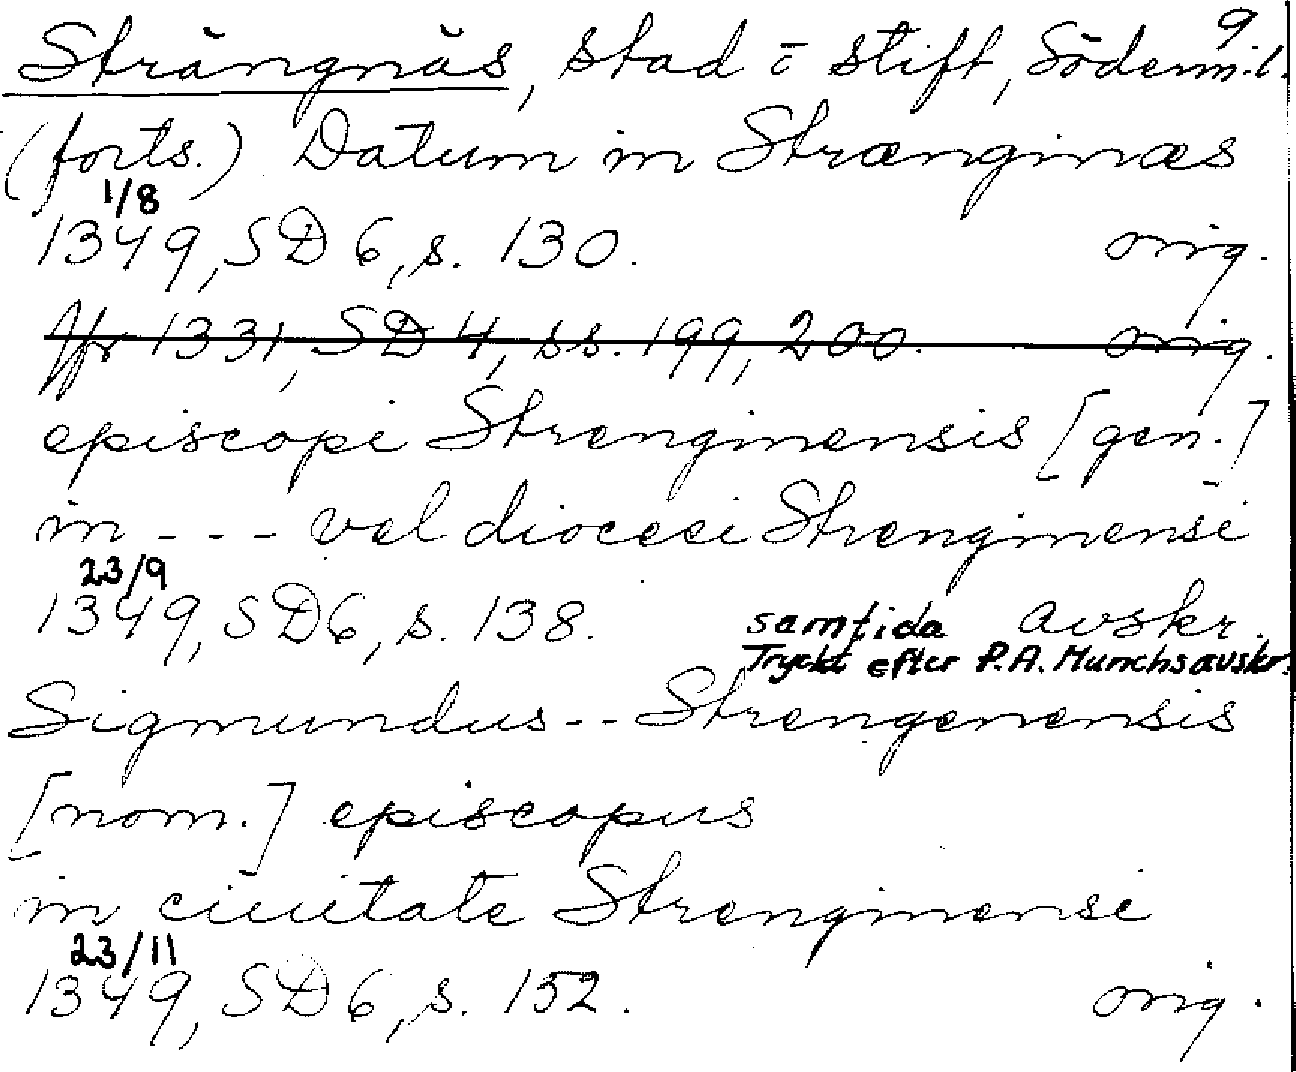 9
Strängnäs, stad o stift, Söderm.l.
(forts.) Datum in Strænginæs
1/8
1349, SD 6, s. 130. orig.
Jfr 1331, SD 4, ss. 199, 200. orig.
episcopi Strenginensis [gen.]
in - - - vel diocesi Strenginensi
23/9
1349, SD 6, s. 138. samtida avskr.
Tryckt efter P.A. Munchs avskr.
Sigmundus - - Strengenensis
[nom.] episcopus
in ciuitate Strenginensi
23/11
1349, SD 6, s. 152. orig.